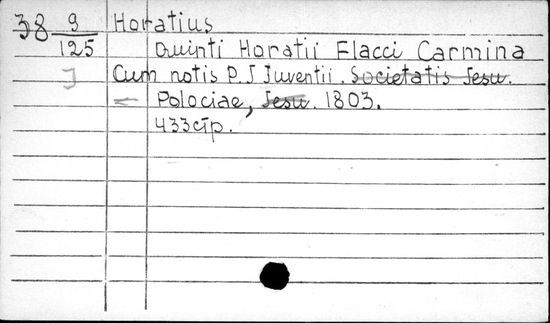 38 9/125 Horatius
Quinti Horatii Flacci Carmina
J Cum notis P. J Juventii. Societatis Jesu.
Polociae, Jesu. 1803.
433 стр.